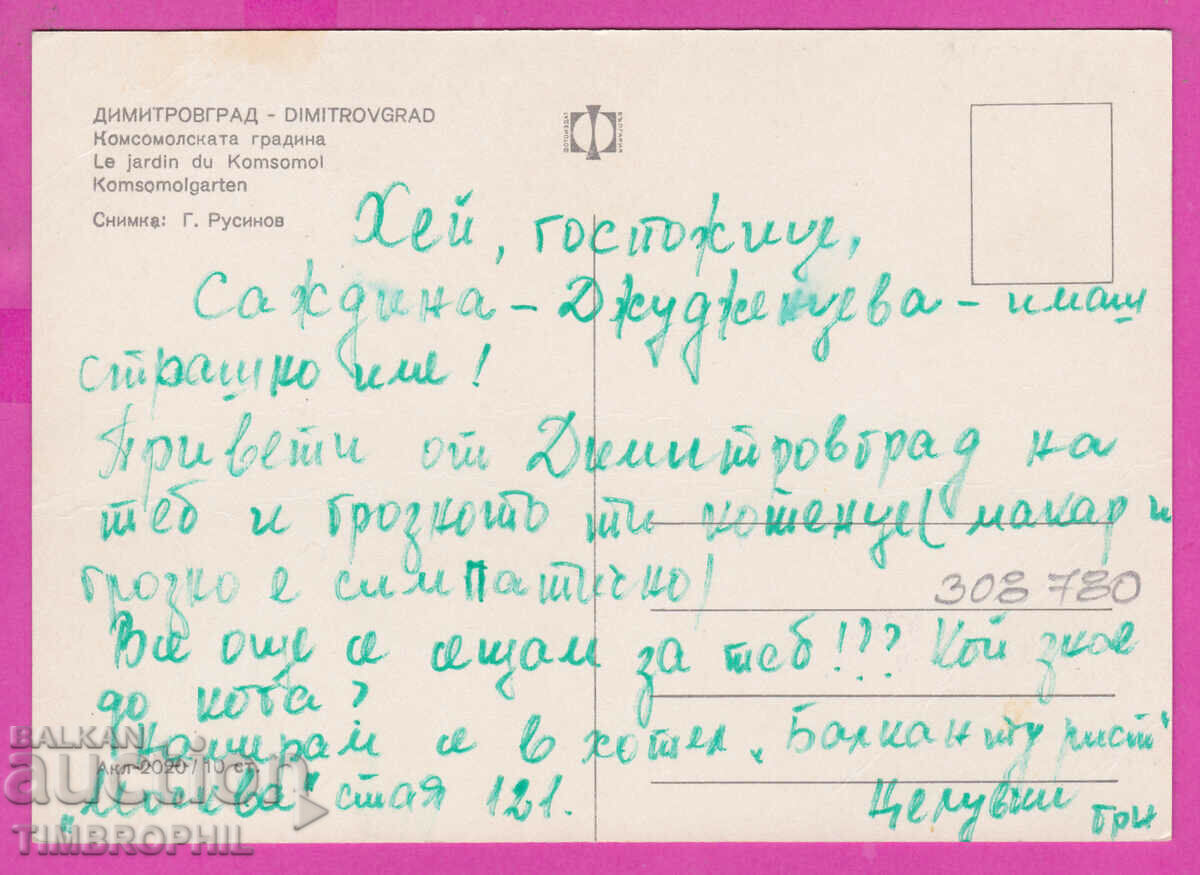 ДИМИТРОВГРАД - DIMITROVGRAD
Комсомолската градина
Le jardin du Komsomol
Komsomolgarten
Снимка: Г. Русинов
ФОТОИЗДАТ
БЪЛГАРИЯ
Хей, госпожице,
Саждина - Джудженцева - имаш
страшно име!
Привети от Димитровград на
теб и грозното ти котенце (макар и
грозно е симпатично)
308 780
Все още се сещам за теб!?? Кой знае
до кога?
Намирам се в хотел „Балкантурист"
Акл-2020 / 10 ст.
„Москва" стая 121.
Целувки
BALKAN
auction
TIMBROPHIL